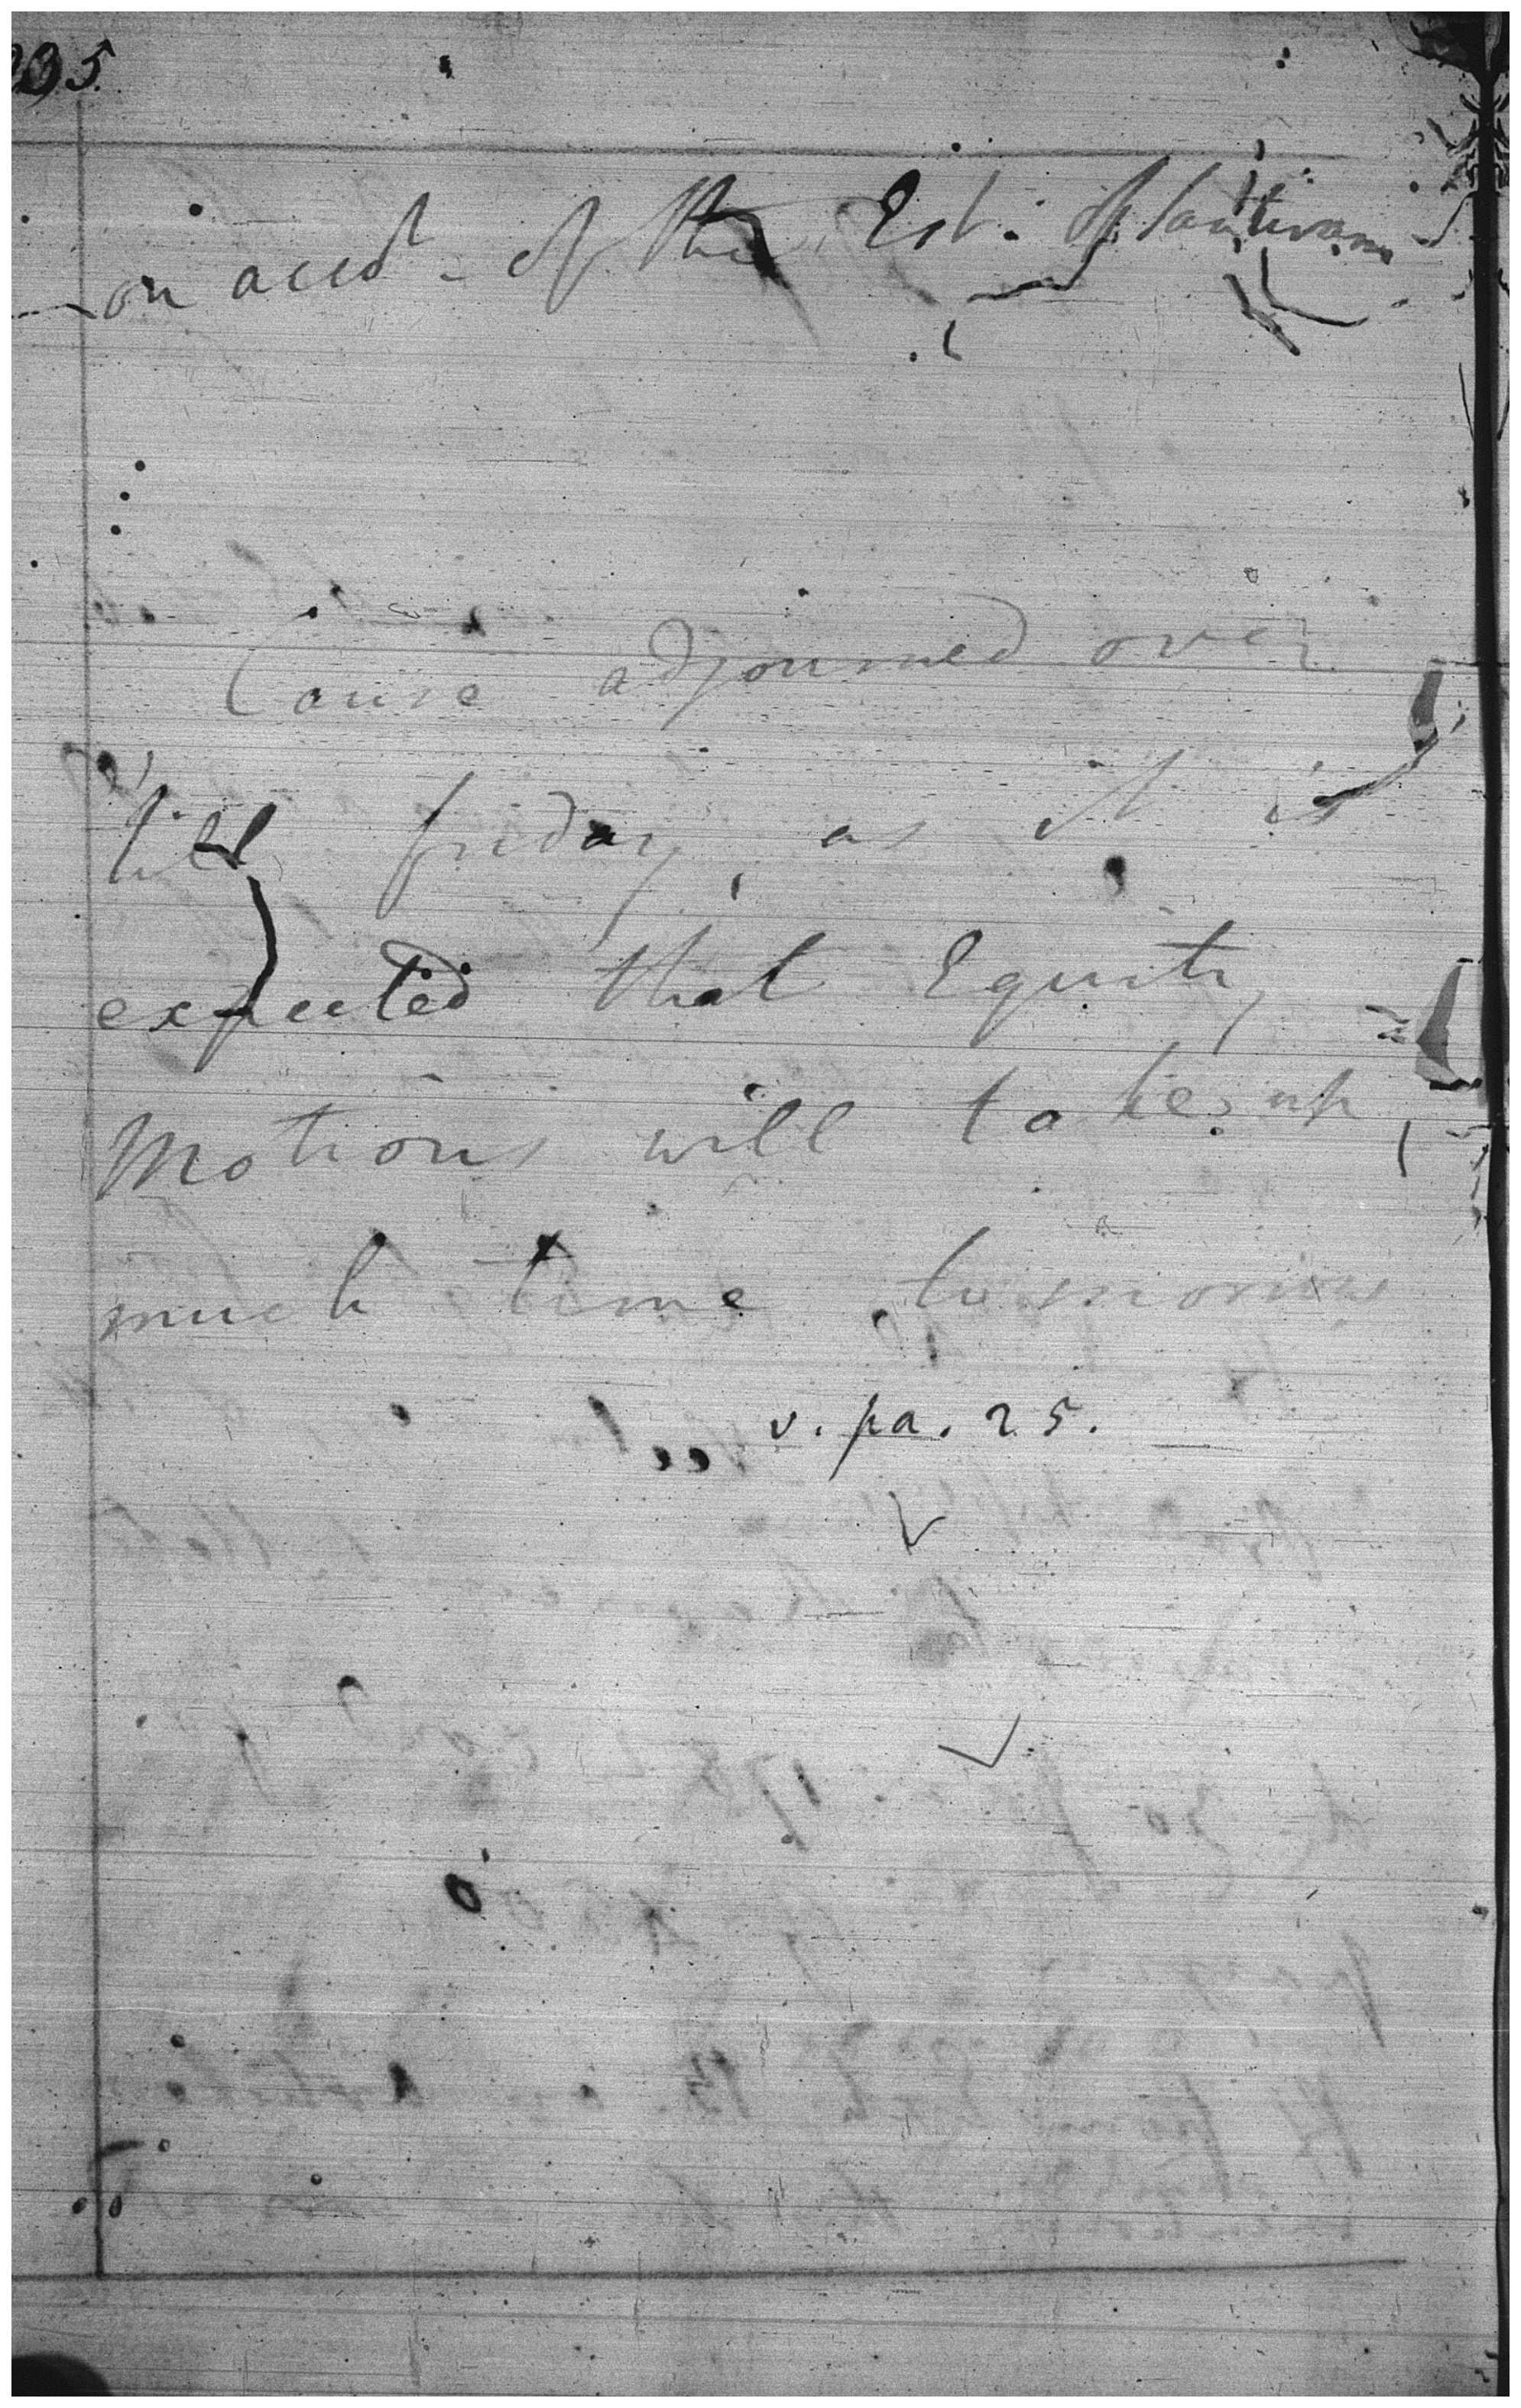 235
on acct. of the Est. of
Cause adjourned over
till friday, as it is
expected that Equity
Motions will take up
much time tomorrow
v. pa. 25.